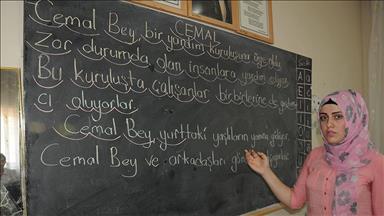 CEMAL
Cemal Bey, bir yardım kuruluşuna üye oldu.
Zor durumda olan insanlara yardım ediyor.
Bu kuruluşta çalışanlar birbirlerine de yardım
cı oluyorlar.
Cemal Bey, yurttaki yaşlıların yanına gidiyor.
Cemal Bey ve arkadaşları